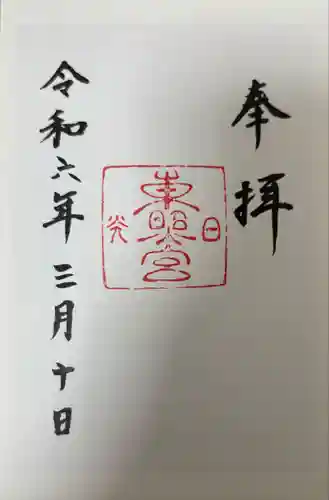 奉拝
日光
東照宮
令和六年三月十日